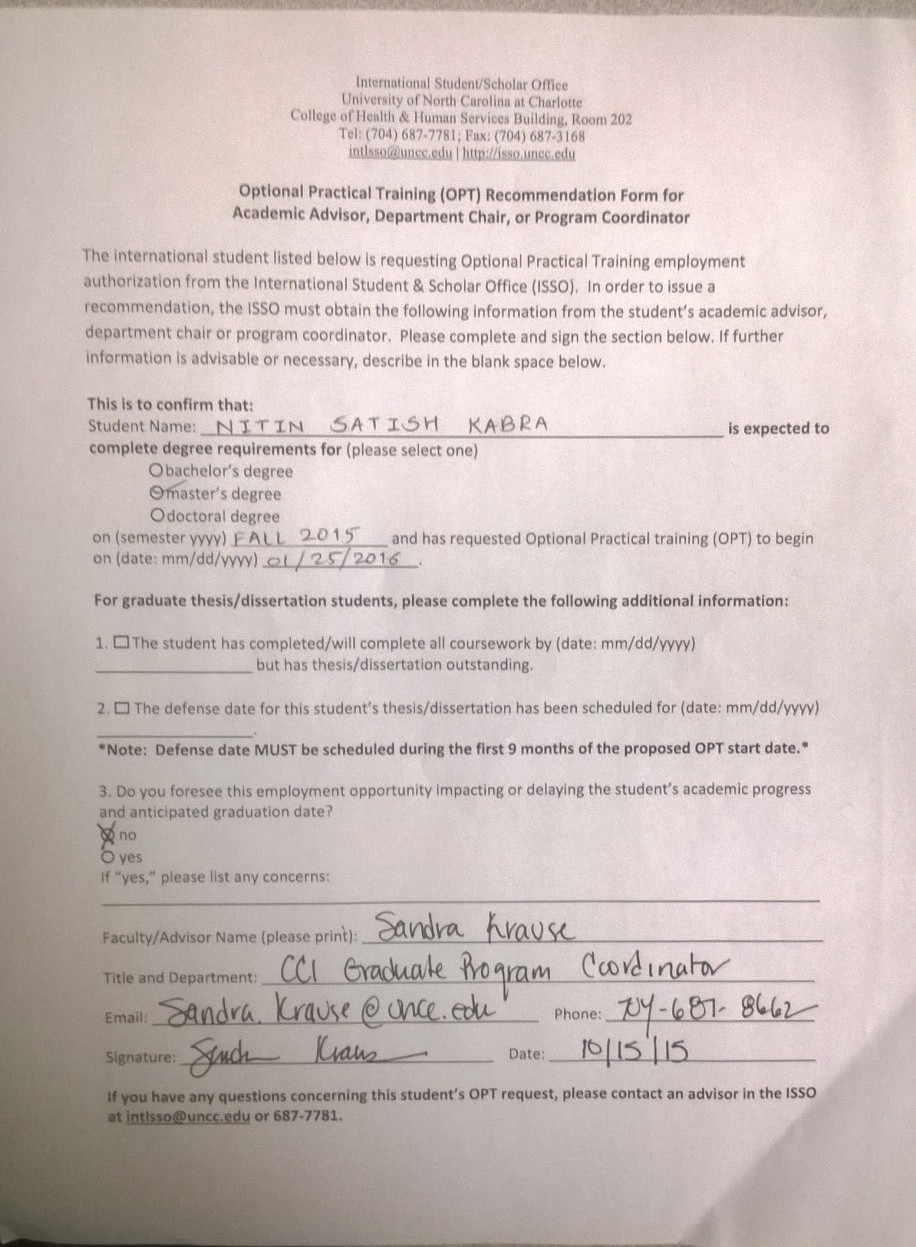 International Student/Scholar Office
University of North Carolina at Charlotte
College of Health & Human Services Building, Room 202
Tel: (704) 687-7781; Fax: (704) 687-3168
intlsso@uncc.edu | http://isso.uncc.edu
Optional Practical Training (OPT) Recommendation Form for
Academic Advisor, Department Chair, or Program Coordinator
The international student listed below is requesting Optional Practical Training employment
authorization from the International Student & Scholar Office (ISSO). In order to issue a
recommendation, the ISSO must obtain the following information from the student's academic advisor,
department chair or program coordinator. Please complete and sign the section below. If further
information is advisable or necessary, describe in the blank space below.
This is to confirm that:
Student Name: NITIN SATISH KABRA is expected to
complete degree requirements for (please select one)
bachelor's degree
master's degree
doctoral degree
on (semester yyyy) FALL 2015 and has requested Optional Practical training (OPT) to begin
on (date: mm/dd/yyyy) 01/25/2016.
For graduate thesis/dissertation students, please complete the following additional information:
1. ☐ The student has completed/will complete all coursework by (date: mm/dd/yyyy)
but has thesis/dissertation outstanding.
2. ☐ The defense date for this student's thesis/dissertation has been scheduled for (date: mm/dd/yyyy)
.
*Note: Defense date MUST be scheduled during the first 9 months of the proposed OPT start date.*
3. Do you foresee this employment opportunity impacting or delaying the student's academic progress
and anticipated graduation date?
no
yes
If "yes," please list any concerns:
Faculty/Advisor Name (please print): Sandra Krause
Title and Department: CCI Graduate Program Coordinator
Email: Sandra.Krause@uncc.edu Phone: 704-687-8662
Signature: Sandra Krause Date: 10/15/15
If you have any questions concerning this student's OPT request, please contact an advisor in the ISSO
at intlsso@uncc.edu or 687-7781.